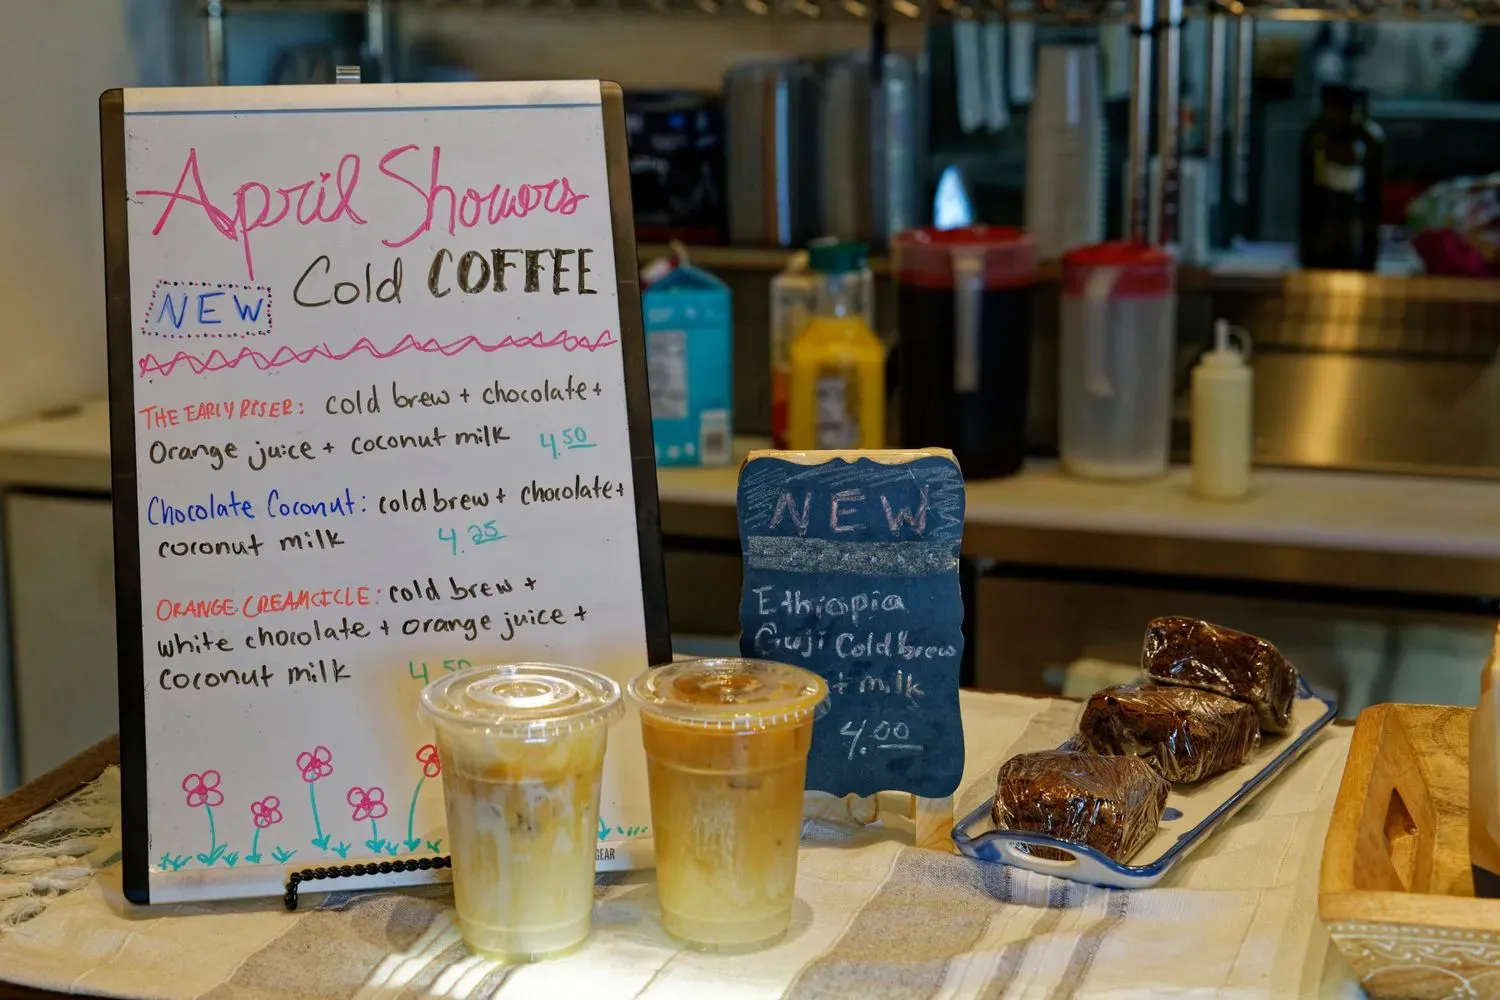 April Showers
Cold COFFEE
NEW
THE EARLY RISER: cold brew + chocolate +
Orange juice + coconut milk 4.50
Chocolate Coconut: cold brew + chocolate +
coconut milk 4.25
ORANGE CREAMCICLE: cold brew +
white chocolate + orange juice +
coconut milk 4.50
GEAR
NEW
Ethiopia
Guji Cold brew
+ milk
4.00